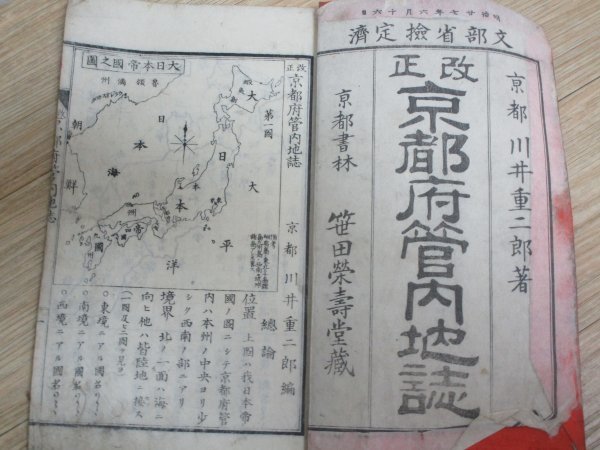 明治廿七年六月十六日
文部省檢定濟
改正
京都 川井重二郎著
京都府管內地誌
京都書林 笹田榮壽堂藏
改正京都府管內地誌
第一圖
大日本帝國之圖
魯領滿州
朝鮮
日本海
大日本帝國
大平洋
本州
京都 川井重二郎編
總論
位置 上圖ハ我日本帝
國ノ圖ニシテ京都府管
內ハ本州ノ中央ヨリ少
シク西南ノ部ニアリ
境界 北ノ一面ハ海ニ
向ヒ他ハ皆陸地ニ接ス
○東境ニアル國名
○南境ニアル國名
○西境ニアル國名